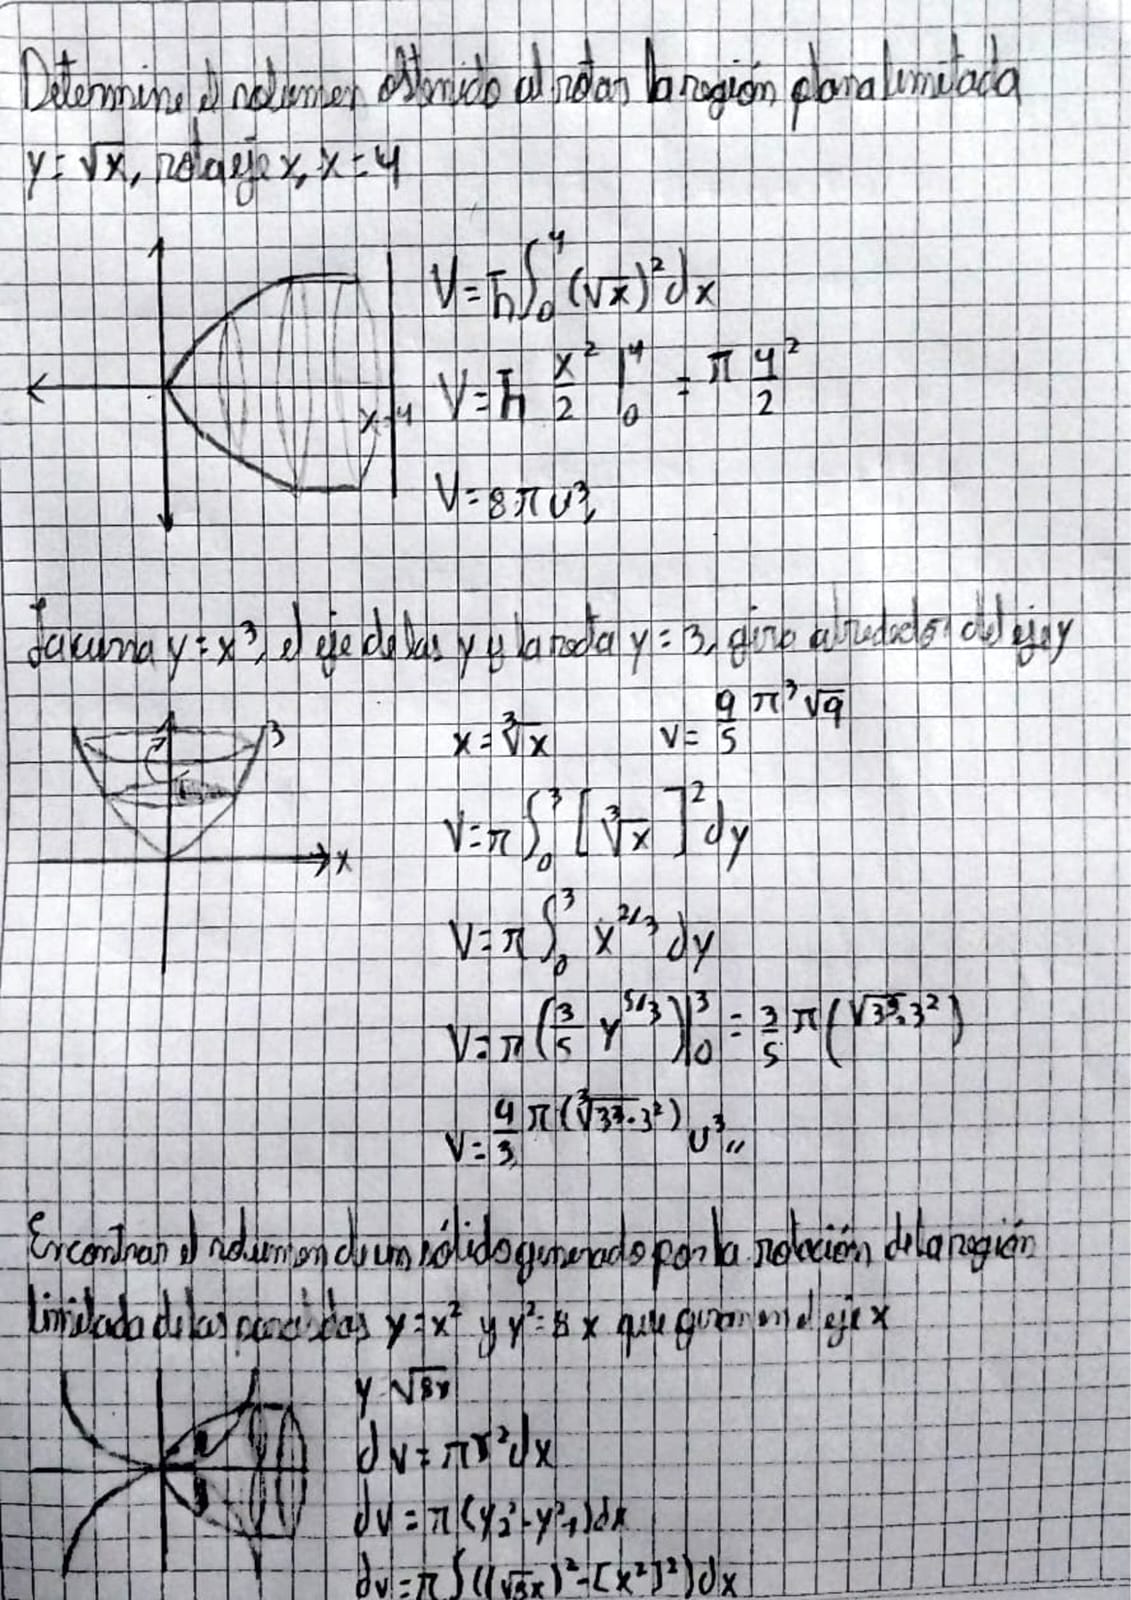 Determine el volumen obtenido al rotar la región plana limitada
y = √x, rota eje x, x = 4
V = π∫₀⁴ (√x)² dx
V = π x²/2 |₀⁴ = π 4²/2
x=4
V = 8π u³,
y = x³, el eje de las y y la recta y = 3, giro alrededor del eje y
x = ∛x V = 9/5 π ³√9
3
V = π∫₀³ [∛x]² dy
x
V = π∫₀³ x^2/3 dy
V = π (3/5 y^5/3)|₀³ = 3/5 π (√3³·3²)
V = 4/3 π (∛3³·3²) u³,,
Encontrar el volumen de un sólido generado por la rotación de la región
limitada de las parabolas y = x² y y² = 8x que giran en el eje x
y √8x
dv = πr² dx
dv = π(y₂² - y²₁)dx
dv = π∫((√8x)² - [x²]²)dx